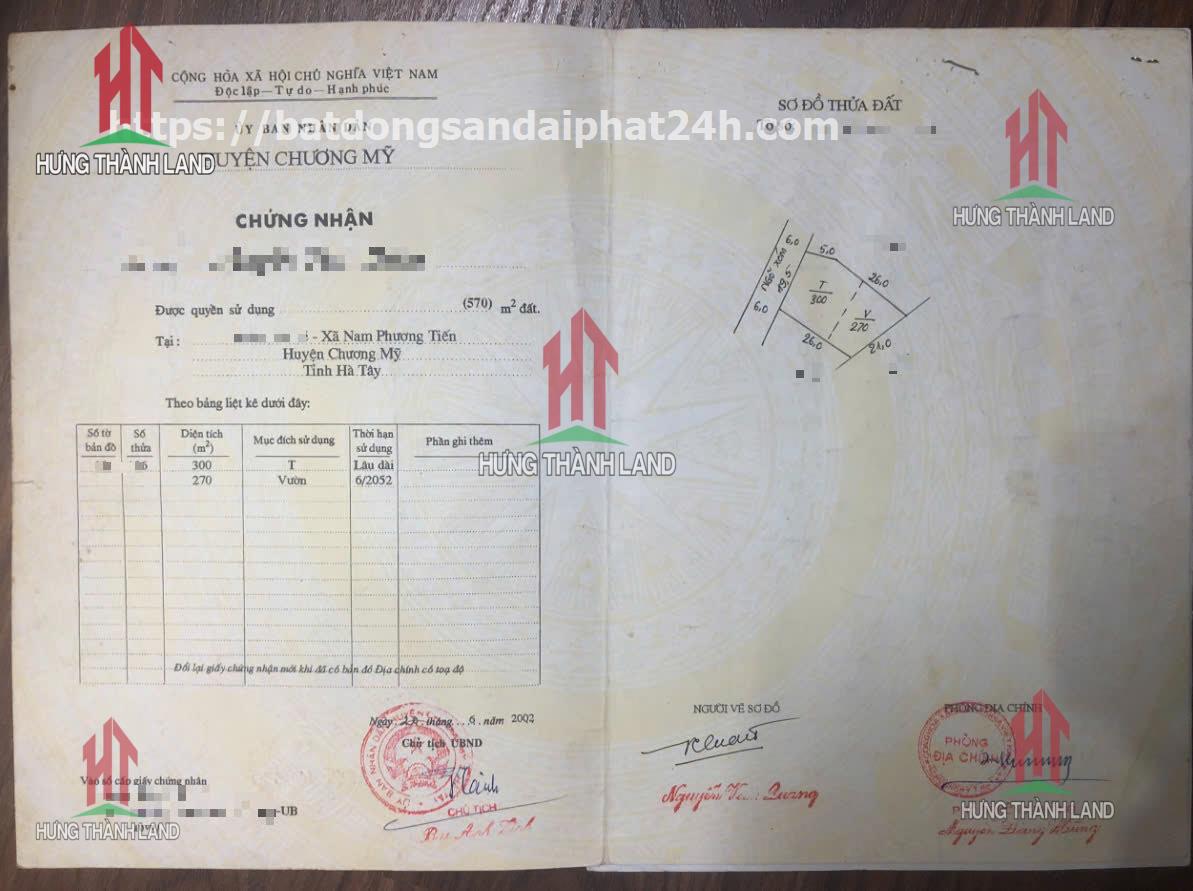 HƯNG THÀNH LAND
CỘNG HÒA XÃ HỘI CHỦ NGHĨA VIỆT NAM
Độc lập—Tự do—Hạnh phúc
https://batdongsandaiphat24h.com
ỦY BAN NHÂN DÂN
HUYỆN CHƯƠNG MỸ
CHỨNG NHẬN
Được quyền sử dụng (570) m² đất.
Tại : - Xã Nam Phương Tiến
Huyện Chương Mỹ
Tỉnh Hà Tây
Theo bảng liệt kê dưới đây:
Số tờ bản đồ Số thửa Diện tích (m²) Mục đích sử dụng Thời hạn sử dụng Phần ghi thêm
300 T Lâu dài
270 Vườn 6/2052
Đổi lại giấy chứng nhận mới khi đã có bản đồ Địa chính có toạ độ
Ngày tháng 6 năm 2002
Chủ tịch UBND
CHỦ TỊCH
Vào sổ cấp giấy chứng nhận
-UB
HƯNG THÀNH LAND
SƠ ĐỒ THỬA ĐẤT
Tờ số
HƯNG THÀNH LAND
6,0
5,0
Ngõ xóm
19,5
26,0
T
300
V
270
6,0
26,0
21,0
HƯNG THÀNH LAND
NGƯỜI VẼ SƠ ĐỒ
Nguyễn Quang
PHÒNG ĐỊA CHÍNH
PHÒNG
ĐỊA CHÍNH
HƯNG THÀNH LAND
Nguyễn Đăng Hùng